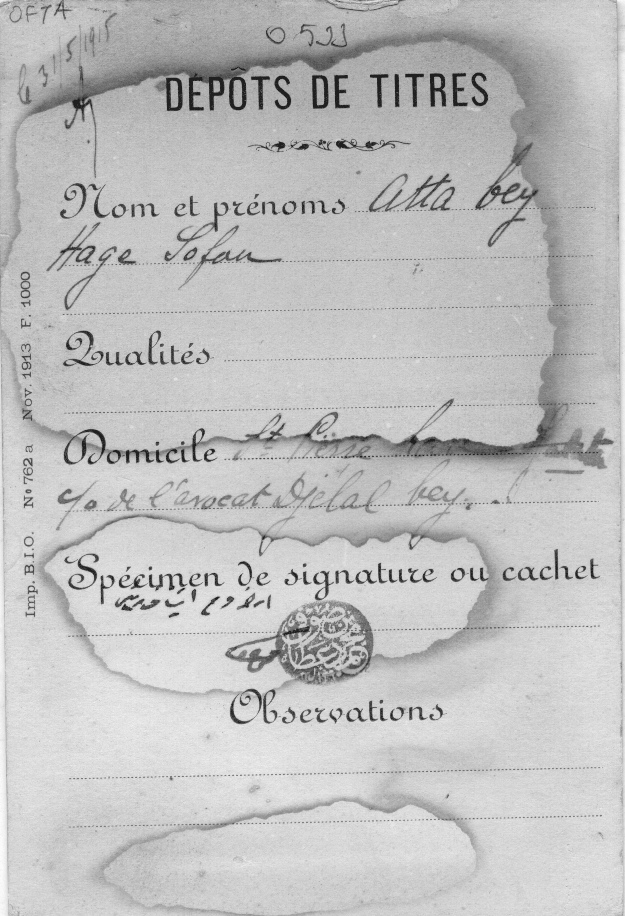 OFTA
0533
le 31/5/1915
DÉPÔTS DE TITRES
Nom et prénoms Atta bey
Hage Sofou
Qualités
Domicile St Pierre Han
c/o de l'avocat Djélal bey.
Spécimen de signature ou cachet
Observations
Imp. B.I.O. No 762a Nov. 1913 F. 1000